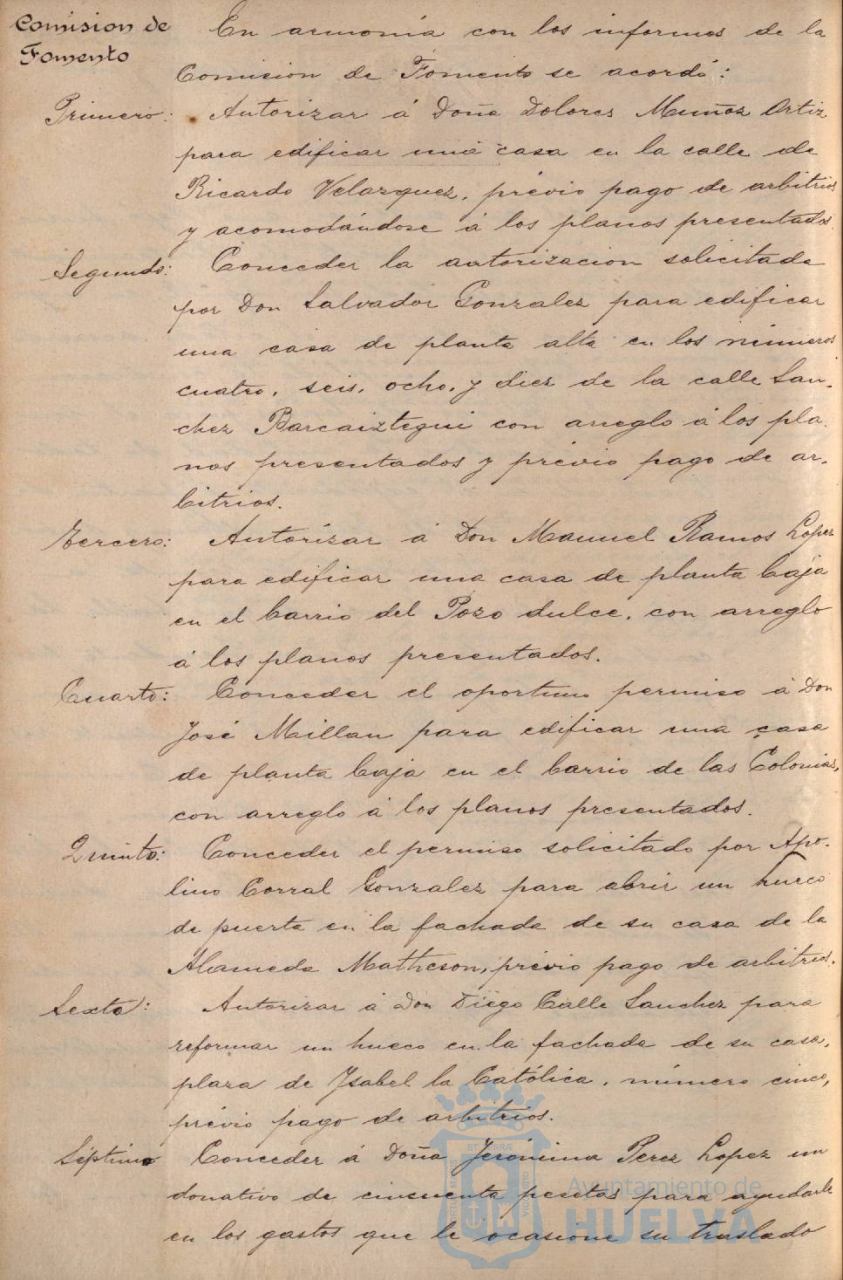 Comision de
Fomento
En armonía con los informes de la
Comision de Fomento se acordó:
Primero: Autorizar á Doña Dolores Muñoz Ortiz
para edificar una casa en la calle de
Ricardo Velazquez, prévio pago de arbitrios
y acomodándose á los planos presentados.
Segundo: Conceder la autorizacion solicitada
por Don Salvador Gonzalez para edificar
una casa de planta alta en los números
cuatro, seis, ocho, y diez de la calle San-
chez Barcaiztegui con arreglo á los pla-
nos presentados y prévio pago de ar-
bitrios.
Tercero: Autorizar á Don Manuel Ramos Lopez
para edificar una casa de planta baja
en el barrio del Pozo dulce, con arreglo
á los planos presentados.
Cuarto: Conceder el oportuno permiso á Don
José Maillan para edificar una casa
de planta baja en el barrio de las Colonias,
con arreglo á los planos presentados.
Quinto: Conceder el permiso solicitado por Apo-
lino Corral Gonzalez para abrir un hueco
de puerta en la fachada de su casa de la
Alameda Matheson, prévio pago de arbitrios.
Sexto: Autorizar á Don Diego Calle Sanchez para
reformar un hueco en la fachada de su casa,
plaza de Ysabel la Católica, número cinco,
prévio pago de arbitrios.
Séptimo Conceder á Doña Jerónima Perez Lopez un
donativo de cincuenta pesetas para ayudarle
en los gastos que le ocasione su traslado
Ayuntamiento de
HUELVA